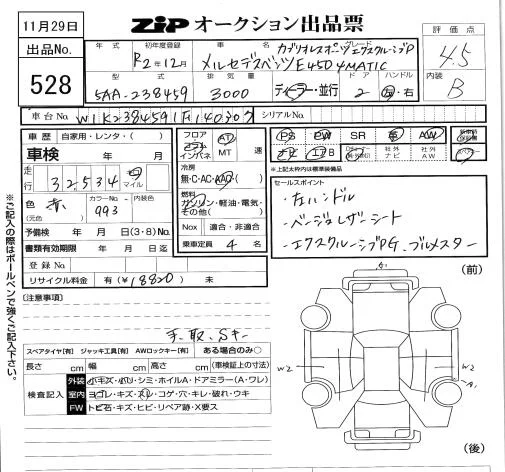 11月29日
ZiP オークション出品票
評価点
4.5
出品No.
528
年式
初年度登録
R2年12月
車名
グレード
メルセデスベンツ E450 4MATIC
カブリオレスポーツエクスクルーシブP
内装
B
型式
5AA-238459
排気量
3000
ディーラー・並行
ドア
2
ハンドル
左・右
車台No.
W1K2384591F140307
シリアルNo.
車歴 自家用・レンタ・( )
車検 年 月
走行
32534
マイル
色
(元色)
赤
カラーNo.
993
内装色
予備検 年 月 日(3・8)No.
書類有効期限 年 月 日迄
登録No.
リサイクル料金 有(¥18820) 未
フロア
コラム
インパネ
AT
MT
速
冷房
無・C・AC・AAC
燃料
ガソリン・軽油・電気・その他( )
Nox 適合・非適合
乗車定員 4 名
PS PW SR 革 AW
ナビ
社外ナビ
社外AW
※上記太枠内は標準装備品
セールスポイント
・左ハンドル
・ベージュレザーシート
・エクスクルーシブPG、ブルメスター
※ご記入の際はボールペンで強くご記入下さい。
(注意事項)
手、取、Sキー
スペアタイヤ[有] ジャッキ工具[有] AWロックキー[有] ある場合のみ○
長さ cm 幅 cm 高さ cm (車検証上の寸法)
検査記入
外装 小キズ・小凹・シミ・ホイルA・ドアミラー(A・ワレ)
室内 ヨゴレ・キズ・スレ・コゲ・穴・キレ・破れ・ウキ
FW トビ石・キズ・ヒビ・リペア跡・X要ス
(前)
W2
W2
A1
(後)